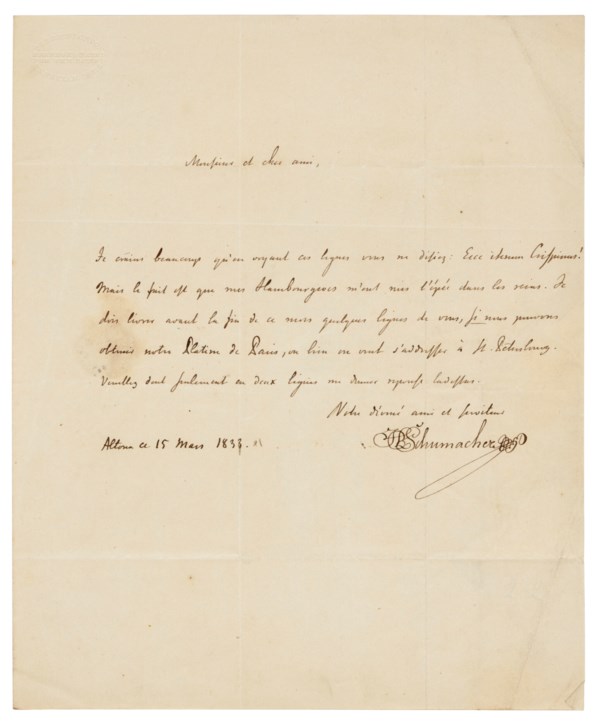 Monsieur et cher ami,
Je crains beaucoup qu'en voyant ces lignes vous ne disiez: Ecce iterum Crispinus!
Mais le fait est que mes Hambourgeois m'ont mis l'épée dans les reins. Je
dois livrer avant la fin de ce mois quelques lignes de vous, si nous pouvons
obtenir notre Platine de Paris, ou bien on veut s'addresser à St. Pétersbourg.
Veuillez dont seulement en deux lignes me donner reponse ladessus.
Votre devoué ami et serviteur
Altona ce 15 Mars 1833. Schumacher